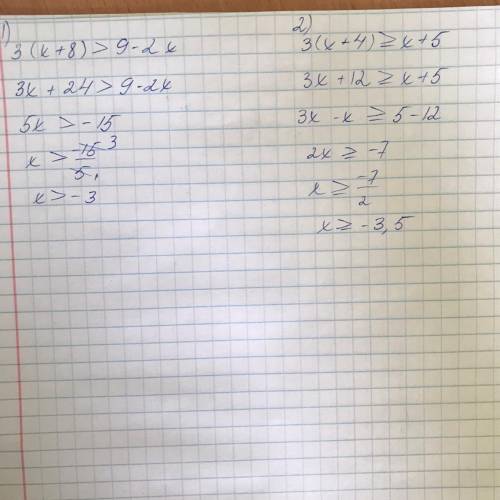 1)
3(x+8) > 9-2x
3x + 24 > 9-2x
5x > -15
x > -15/5 3 1
x > -3
2)
3(x+4) ≥ x+5
3x+12 ≥ x+5
3x - x ≥ 5-12
2x ≥ -7
x ≥ -7/2
x ≥ -3,5